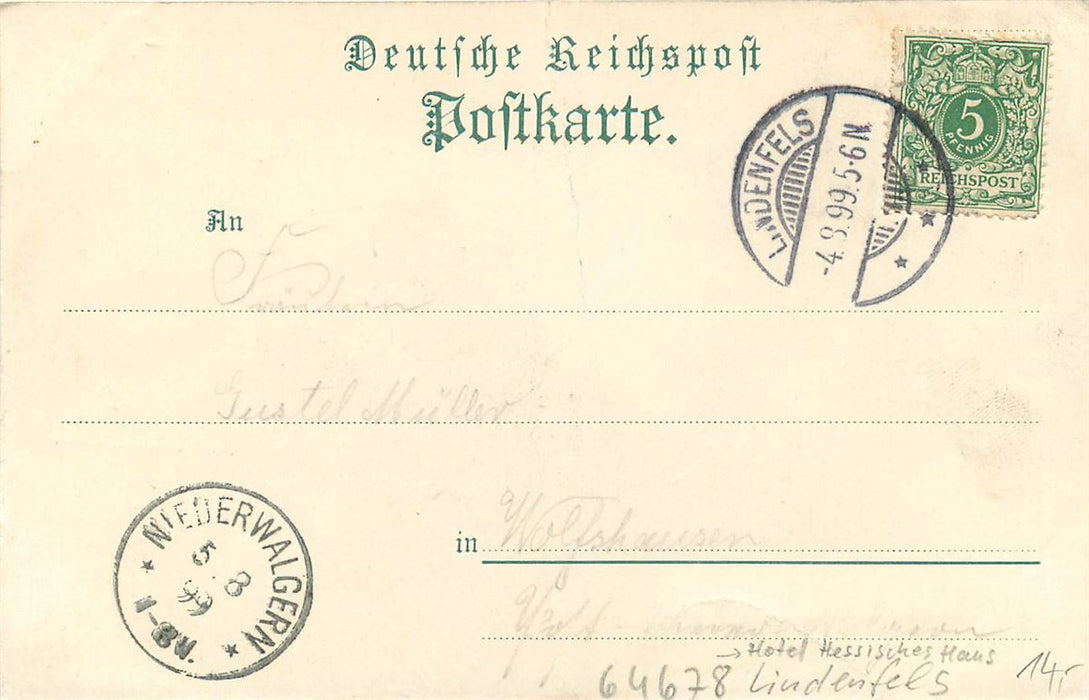 Deutsche Reichspost
Postkarte.
5
PFENNIG
REICHSPOST
LINDENFELS
-4.8.99.5-6N.
An
Fräulein
Gustel Müller
in Wolfshausen
Post
NIEDERWALGERN
5 8
99
→ Hotel Hessisches Haus
64678 Lindenfels
14,-